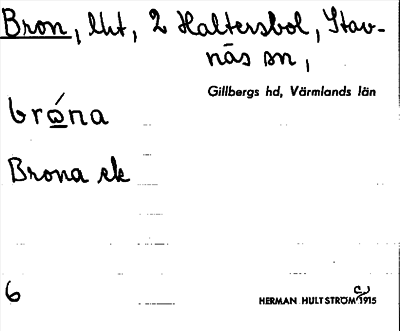 Bron, lht, 2 Haltersbol, Stav-
näs sn,
Gillbergs hd, Värmlands län
bróna
Brona ek
6
HERMAN HULTSTRÖM 1915